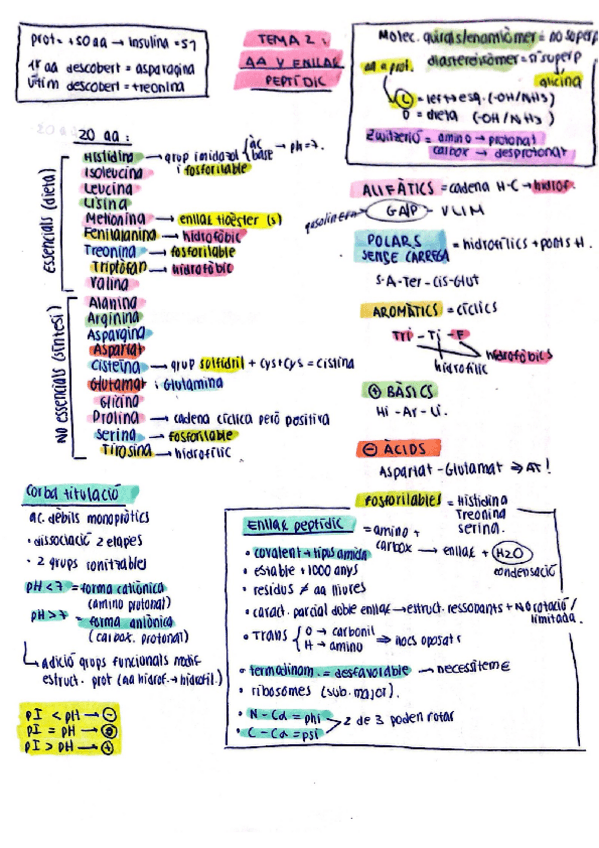 prot = +50 aa → insulina = 51
1r aa descobert = asparagina
últim descobert = treonina
TEMA 2:
AA Y ENLLAÇ
PEPTÍDIC
Molec. quirals/enantiòmer = no superp
diastereoisòmer = sí superp
aa a prot. glicina
L = left → esq. (-OH/NH3)
D = dreta (-OH/NH3)
Zwitterió = amino → protonat
carbox → desprotonat
20 aa:
Essencials (dieta)
Histidina → grup imidazol { àc base → pH=7.
Isoleucina i fosforilable
Leucina
Lisina
Metionina → enllaç tioèster (s)
Fenilalanina → hidrofòbic
Treonina → fosforilable
Triptòfan → hidrofòbic
Valina
No essencials (síntesi)
Alanina
Arginina
Aspargina
Aspartat
Cisteïna → grup sulfidril + cys+cys = cistina
Glutamat i Glutamina
Glicina
Prolina → cadena cíclica però positiva
Serina → fosforilable
Tirosina → hidrofílic
ALIFÀTICS = cadena H-C → hidrof.
gasolinera GALP - VLIM
POLARS
SENSE CARREGA = hidrofílics + ponts H.
S-A-Ter-Cis-Glut
AROMÀTICS = cíclics
Tri - Ti - F
hidrofòbics
hidrofílic
+ BÀSICS
Hi - Ar - Li.
- ÀCIDS
Aspartat - Glutamat ⇒ AT!
Fosforilables = Histidina
Treonina
serina.
Corba titulació
àc. dèbils monopròtics
· dissociació 2 etapes
· 2 grups ionitzables
pH < 7 = forma catiònica
(amino protonat)
pH > 7 = forma aniònica
(carbox. protonat)
adició grups funcionals modif.
estruct. prot (aa hidrof. → hidrofil.)
pI < pH → -
pI = pH → 0
pI > pH → +
Enllaç peptídic = amino +
carbox → enllaç + H2O
condensació
• covalent → tipus amida
• estable +1000 anys
• residus ≠ aa lliures
• caràct. parcial doble enllaç → estruct. ressonants + NO rotació/
limitada.
• TRANS { O → carbonil H → amino ⇒ llocs oposats
• termodinam. = desfavorable → necessitem E
• ribosomes (sub. major).
• N - Cα = phi
• C - Cα = psi
2 de 3 poden rotar